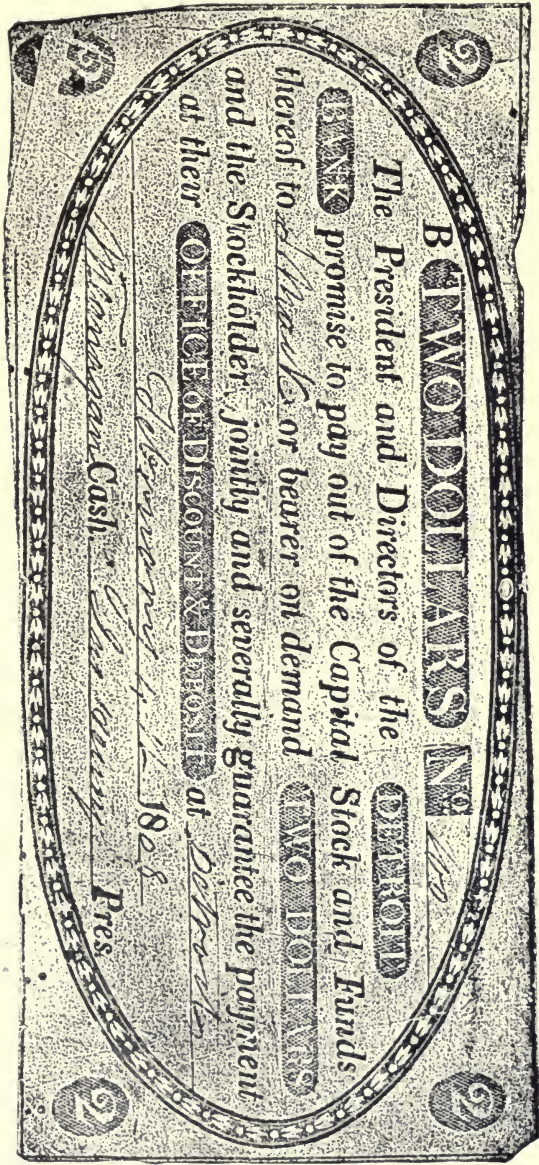 2 2
B TWO DOLLARS No.
The President and Directors of the DETROIT
BANK promise to pay out of the Capital Stock and Funds
thereof to or bearer on demand TWO DOLLARS
and the Stockholders jointly and severally guarantee the payment
at their OFFICE of DISCOUNT & DEPOSIT at Detroit
February 1808
Cash. Pres.
2 2